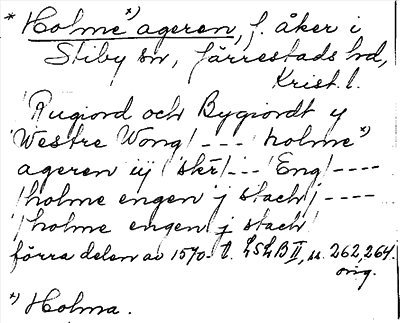 * Holme *) ageren, f. åker i
Stiby sn, Järrestads hd,
Krist. l.
/Rugiord och Bygiordt y
Westre Wong/ --- /holme *)
ageren iij skr/ --- /Eng/ ----
/holme engen j stack/ ----
/holme engen j stack/
förra delen av 1570-t. LSLB II, s. 262, 264.
orig.
*) Holma.